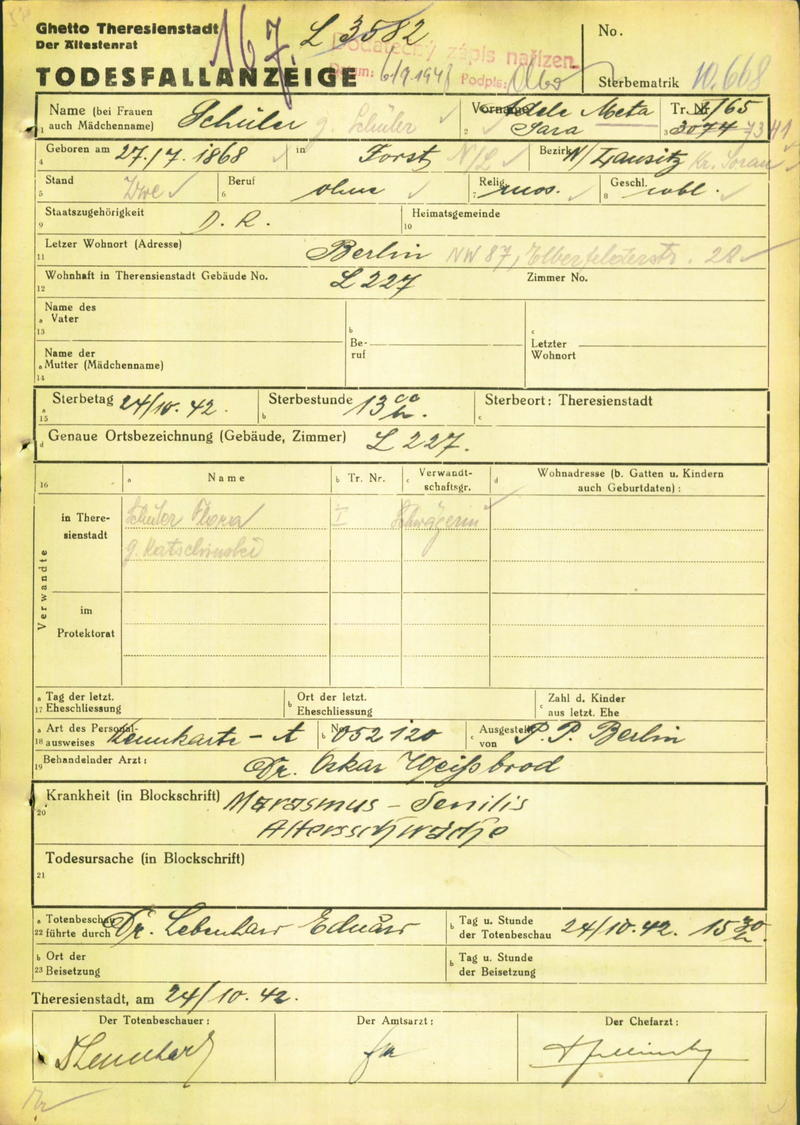 Ghetto Theresienstadt
Der Ältestenrat
167. L 3582
Dodatečný zápis nařízen.
Datum: 6/9.1948 Podpis:
No.
TODESFALLANZEIGE
Sterbematrik 10.668
Name (bei Frauen auch Mädchenname) Schüler g. Schüler
1
Vorname Adele Meta Sara
2
Tr. Nr. I/65
3 3074 7341
Geboren am 27./7. 1868 in Forst N/L Bezirk N/Lausitz Kr. Sorau
4
Stand Zwe Beruf ohne Relig. mos. Geschl. weibl.
5 6 7 8
Staatszugehörigkeit D. R. Heimatsgemeinde
9 10
Letzer Wohnort (Adresse) Berlin NW 87, Elberfelderstr. 28
11
Wohnhaft in Therensienstadt Gebäude No. L 227 Zimmer No.
12
Name des
a Vater
13
b Be-
ruf
c Letzter
Wohnort
Name der
a Mutter (Mädchenname)
14
Sterbetag 24/10. 42. Sterbestunde 13 00 h. Sterbeort: Theresienstadt
a 15 b c
d Genaue Ortsbezeichnung (Gebäude, Zimmer) L 227.
16 a Name b Tr. Nr. c Verwandt-
schaftsgr. d Wohnadresse (b. Gatten u. Kindern
auch Geburtdaten) :
Verwandte
in There-
sienstadt
Schüler Flora I Schwägerin
g. Katschinski
im
Protektorat
a Tag der letzt.
17 Eheschliessung
b Ort der letzt.
Eheschliessung
c Zahl d. Kinder
aus letzt. Ehe
a Art des Personal-
18 ausweises Kennkarte - A b No. 052120 c Ausgestellt
von P. P. Berlin
19 Behandelnder Arzt: Dr. Oskar Weißbrod
Krankheit (in Blockschrift) Marasmus - Senilis
20 Altersschwäche
Todesursache (in Blockschrift)
21
a Totenbeschau
22 führte durch Dr. Lebenhar Eduard b Tag u. Stunde
der Totenbeschau 24/10.42. 15 30 h.
b Ort der
23 Beisetzung
b Tag u. Stunde
der Beisetzung
Theresienstadt, am 24/10. 42.
Der Totenbeschauer: Der Amtsarzt: Der Chefarzt: